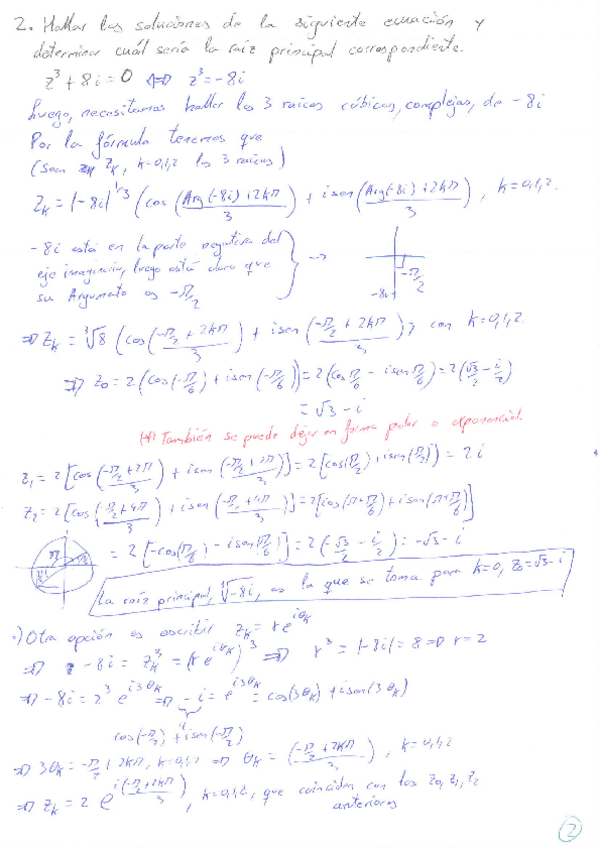 2. Hallar las soluciones de la siguiente ecuación y
determinar cuál sería la raíz principal correspondiente.
z³ + 8i = 0 ⇔ z³ = -8i
Luego, necesitamos hallar las 3 raíces cúbicas, complejas, de -8i
Por la fórmula tenemos que
(Sean z_k, k=0,1,2 las 3 raíces)
z_k = |-8i|^{1/3} (cos((Arg(-8i)+2kπ)/3) + i sen((Arg(-8i)+2kπ)/3)), k=0,1,2.
-8i está en la parte negativa del
eje imaginario, luego está claro que
su Argumento es -π/2
→
-π/2
-8i
⇒ z_k = ∛8 (cos((-π/2 + 2kπ)/3) + i sen((-π/2 + 2kπ)/3)), con k=0,1,2.
⇒ z₀ = 2(cos(-π/6) + i sen(-π/6)) = 2(cos π/6 - i sen π/6) = 2(√3/2 - i/2)
= √3 - i
(*) También se puede dejar en forma polar o exponencial.
z₁ = 2[cos((-π/2+2π)/3) + i sen((-π/2+2π)/3)] = 2[cos(π/2) + i sen(π/2)] = 2i
z₂ = 2[cos((-π/2+4π)/3) + i sen((-π/2+4π)/3)] = 2[cos(π+π/6) + i sen(π+π/6)]
= 2[-cos(π/6) - i sen(π/6)] = 2(-√3/2 - i/2) = -√3 - i
La raíz principal, ∛-8i, es la que se toma para k=0, z₀=√3-i
•) Otra opción es escribir z_k = r e^{iθ_k}
⇒ -8i = z_k³ = (r e^{iθ_k})³ ⇒ r³ = |-8i| = 8 ⇒ r = 2
⇒ -8i = 2³ e^{i3θ_k} ⇒ -i = e^{i3θ_k} = cos(3θ_k) + i sen(3θ_k)
cos(-π/2) + i sen(-π/2)
⇒ 3θ_k = -π/2 + 2kπ, k=0,1,2 ⇒ θ_k = (-π/2 + 2kπ)/3, k=0,1,2
⇒ z_k = 2 e^{i((-π/2+2kπ)/3)}, k=0,1,2, que coinciden con los z₀, z₁, z₂
anteriores
2